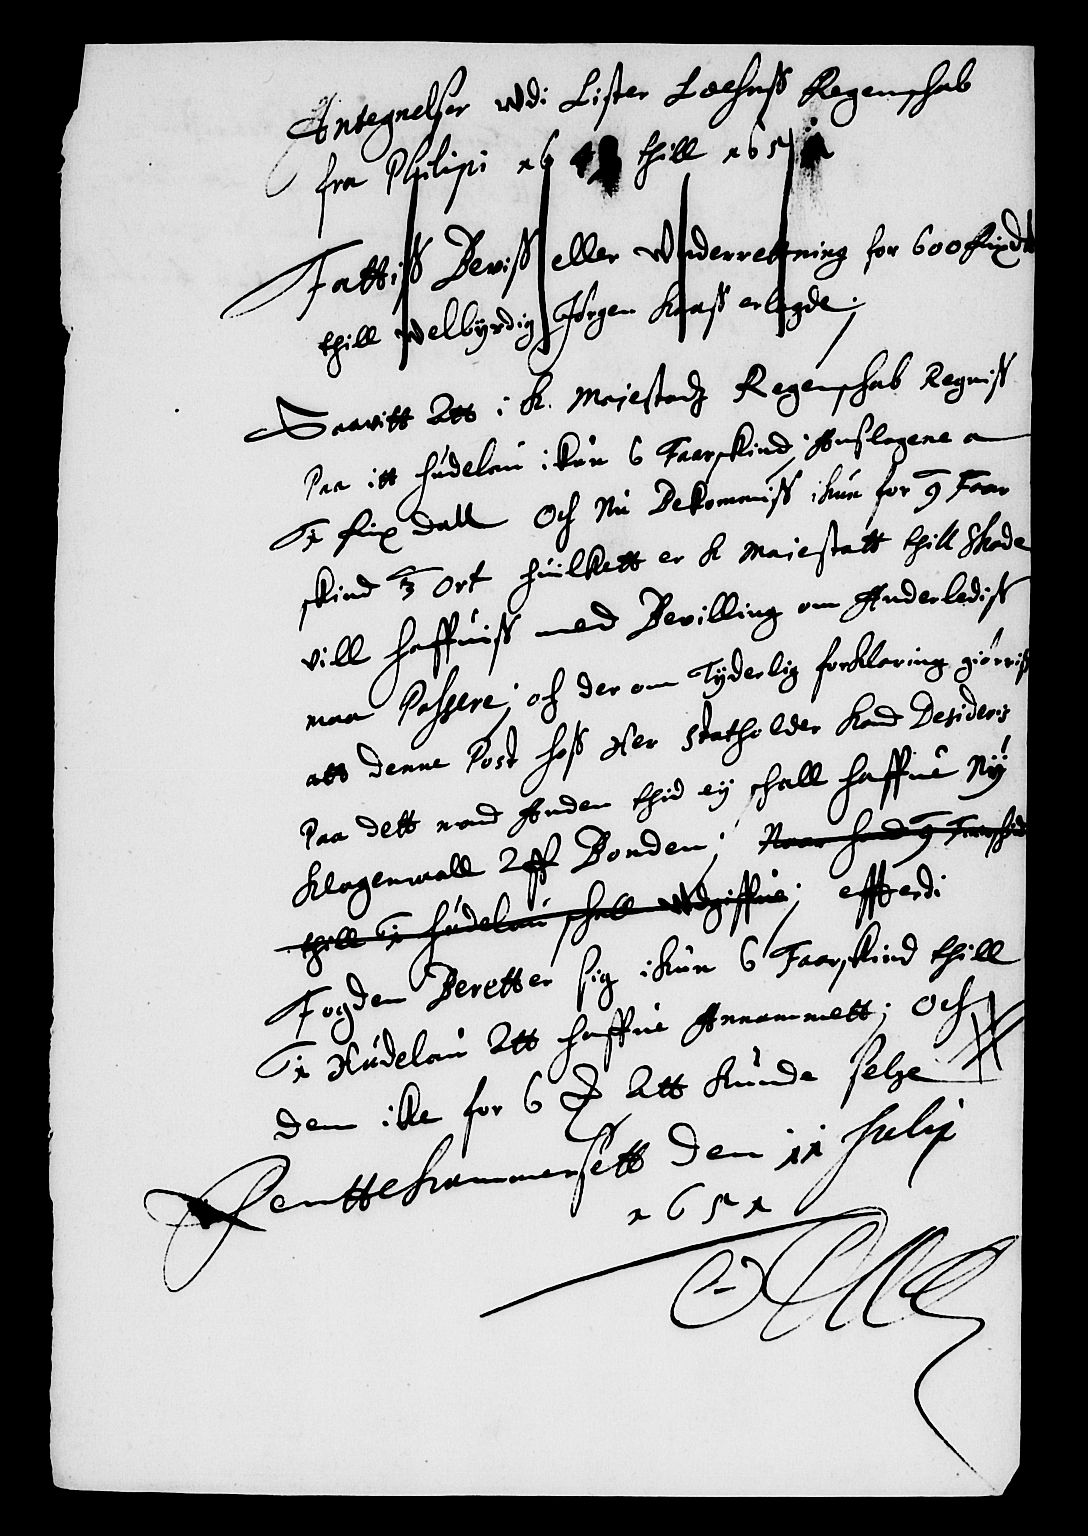 Antegnelser udi Lister Læhnss Regenschab
fra Philipi 16 thill 1651
Fattiss Beviss eller Underretning for 600 Rixd
thill Velbÿrdig Jörgen Kaass erlagde;
Saavitt Att i K. Majestadz Regenschab Regniss
Paa itt Hudelau ikun 6 Faarskind; Anslagene a
1 Rix Dall Och Nu Bekommiss ikun for 9 Faar
skind 3 Ort Huilkett er K Maiestatt thill Skade
vill haffuiss med Bevilling om Anderlediss
maa Passere; och der om Tÿderlig forklaring giörris
att denne Post hoss Her Statholder Kand Desideris
Paa dett mand Anden thid eÿ schall haffue Nÿ
Klagenmall Aff Bonden; Naar hand 9 Faarschind
thill 1 Hudelau schall Udgiffue; effterdi
Fogden Beretter sig ikun 6 Faarskind thill
1 Hudelau Att haffue Annammett; Och
dem ike for 6 Att Kunde selge
Renttekammersett Den 11 Julij
1651